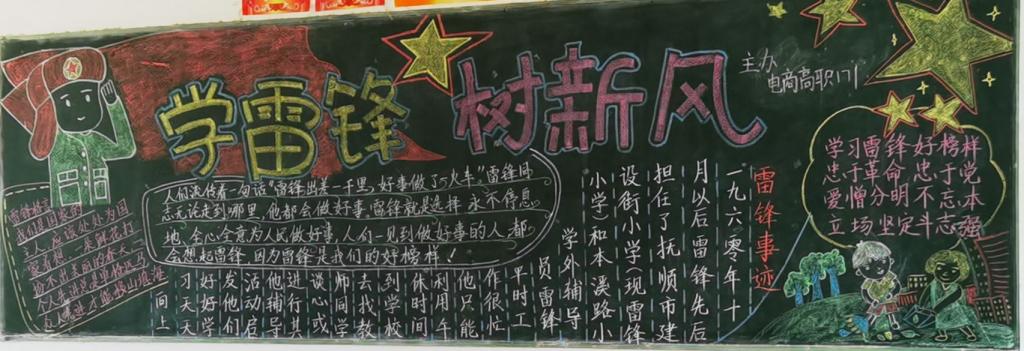 学雷锋 树新风
主办
电商高职171
人们流传着一句话"雷锋出差一千里,好事做了一火车"雷锋同
志无论走到哪里,他都会做好事,雷锋就是选择永不停息
地、全心全意为人民做好事,人们一见到做好事的人,都
会想起雷锋,因为雷锋是我们的好榜样!
雷锋事迹
一九六零年十
月以后雷锋先后
担任了抚顺市建
设街小学(现雷锋
小学)和本溪路小
学外辅导
员雷锋
平时工
作很忙
他只能
利用午
休时间
到学校
去找教
师同学
谈心或
进行其
他辅导
活动启
发他们
好好学
习天天
间上
学习雷锋好榜样
忠于革命忠于党
爱憎分明不忘本
立场坚定斗志强